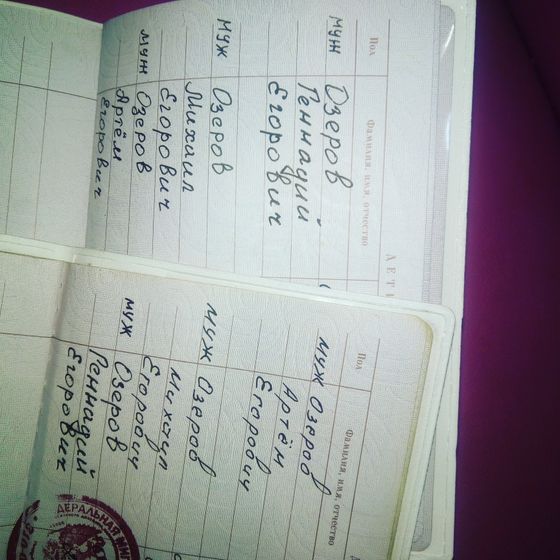 ДЕТИ
Пол Фамилия, имя, отчество
муж Озеров
Геннадий
Егорович
муж Озеров
Михаил
Егорович
муж Озеров
Артём
Егорович
Пол Фамилия, имя, отчество
муж Озеров
Артём
Егорович
муж Озеров
Михаил
Егорович
муж Озеров
Геннадий
Егорович
ДЕРАЛЬНАЯ МИГ